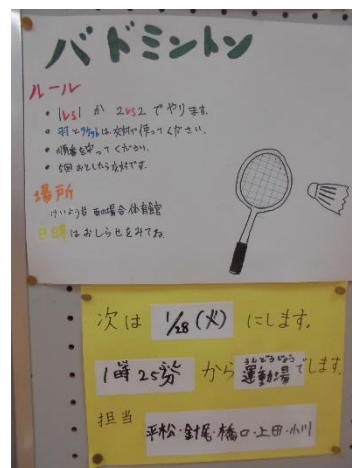 バドミントン
ルール
・1vs1 か 2vs2 でやります。
・羽と は、 使ってください。
・順番を守ってください。
・5回おとしたら交代です。
場所
雨の場合 体育館
日時はおしらせをみてね。
次は 1/28(火) にします。
1時25分 から 運動場でします。
うんどうじょう
担当 平松・針尾・橋口・上田・小川